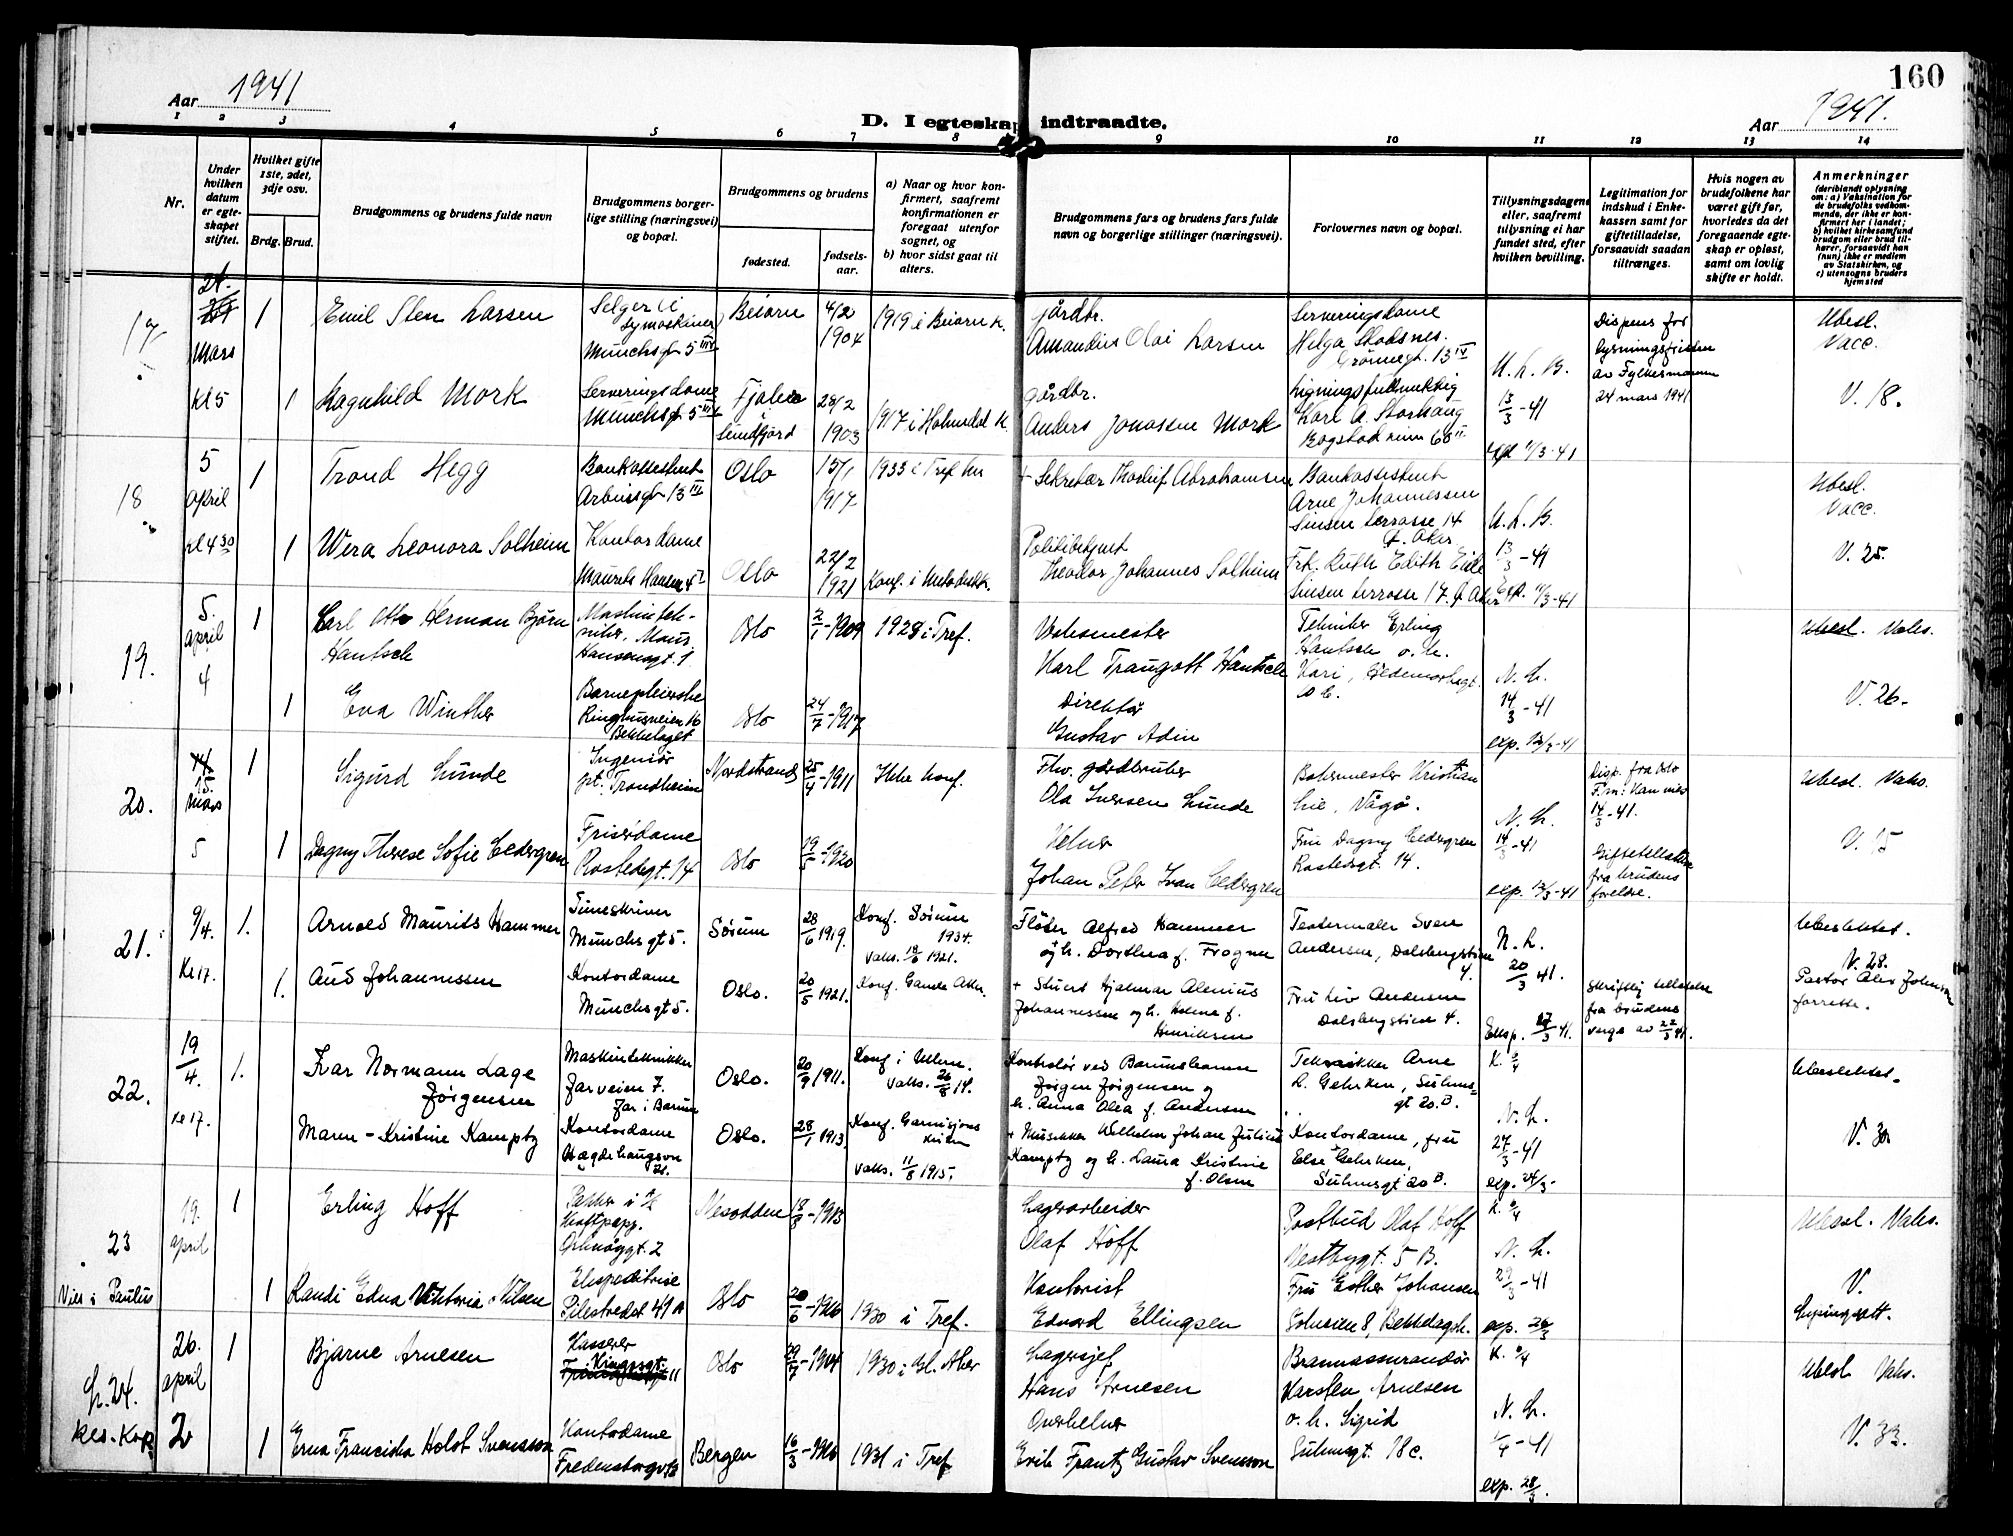 160
Aar 1941
D. I egteskap indtraadte.
Aar 1941.
1 2 3 4 5 6 7 8 9 10 11 12 13 14
Nr.
Under hvilken datum er egteskapet stiftet.
Hvilket gifte 1ste, 2det, 3dje osv.
Brdg. Brud.
Brudgommens og brudens fulde navn
Brudgommens borgerlige stilling (næringsvei) og bopæl.
Brudgommens og brudens
fødested.
fødselsaar.
a) Naar og hvor konfirmert, saafremt konfirmationen er foregaat utenfor sognet, og
b) hvor sidst gaat til alters.
Brudgommens fars og brudens fars fulde navn og borgerlige stillinger (næringsvei).
Forlovernes navn og bopæl.
Tillysningsdagene eller, saafremt tillysning ei har fundet sted, efter hvilken bevilling.
Legitimation for indskud i Enkekassen samt for giftetilladelse, forsaavidt saadan tiltrænges.
Hvis nogen av brudefolkene har været gift før, hvorledes da det foregaaende egteskap er opløst, samt om lovlig skifte er holdt.
Anmerkninger
(deriblandt oplysning om: a) Vaksination for de brudefolks vedkommende, der ikke er konfirmert her i landet; b) hvilket kirkesamfund brudgom eller brud tilhører, forsaavidt han (hun) ikke er medlem av Statskirken, og c) utensogns bruders hjemsted
17 Mars kl 5
1 Emil Sten Larsen
Selger i symaskiner Munchsgt 5 III
Beiarn 4/2 1904
1919 i Beiarn k.
gårdbr.
Amandus Olai Larsen
Serveringsdame
Helga Stoksnes.
Grønnegt. 13 IV
U. L. B.
Dispens for lysningsfristen av Fylkesmannen 24 mars 1941
Ubesl.
Vacc.
1 Ragnhild Mork
Serveringsdame Munchsgt 5 III
Fjaler i Sundfjord 28/2 1903
1917 i Holmedal k.
gårdbr.
Anders Jonassen Mork
Ligningsfullmektig
Karl A. Storhaug
13/3-41
V. 18.
18 5 april kl 4 30
1 Trond Hegg
Bankassistent
Arbinsgt 13 III
Oslo 15/1 1917
1933 i Tref.
+ Sekretær Thorleif Abrahamsen
Bankassistent
Arne Johannessen
Sinsen terrasse 14
Ø. Aker
U. L. B.
Ubesl.
Vacc.
1 Wera Leonora Solheim
Kontordame
Oslo 22/2 1921
Konf. i Metodistk.
Politibetjent
Theodor Johannes Solheim
Frk. Ruth Edith Eide
Sinsen terrasse 17. Ø Aker
13/3-41
V. 25.
19. 5. april 4
1 Carl Otto Herman Bjørn Hantsch
Maskintekniker. Maur. Hansensgt. 1
Oslo 2/1-1909
1924 i Tref.
Karl Traugott Hantsch
Tekniker Erling
Hantsch o. h.
Kari, Gjedemarksgt.
N. L.
Ubesl. Vaks.
1 Eva Winther
Barnepleierske
Ringhusveien 16
Bekkelaget
Oslo 24/7-1917
Direktør
Gustav Adin
14/3-41
exp. 12/3-41
V. 26-
20. 15. mars 5
1 Sigurd Lunde
Ingeniør
pt. Trondheim
Nordstrand 25/4-1911
Ikke konf.
Fhv. gårdbruker
Ola Iversen Lunde
Bakermester Kristian
Lie, Vågå.
N. L.
Disp. fra Oslo
14/3-41.
Ubesl. Vaks.
1 Dagny Therese Sofie Cedergren
Frisørdame
Rostedsgt. 14
Oslo
Kelner
Johan Peter Ivan Cedergren
Fru Dagny Cedergren
Rostedsgt. 14.
14/3-41
exp. 12/3-41
Giftetillatelse
fra brudens
forelde.
V. 15
21. 9/4. Kl 17.
1. Arnold Maurits Hammer
Munchsgt 5.
Sørum 28/6 1919.
Konf. Sørum
1934.
Fløter Alfred Hammer
og h. Dorthea f. Frogner
Teatermaler Sven
Andersen, Dalsbergstien
4.
N. L.
Ubeslektet.
1. Aud Johannessen
Kontordame
Munchsgt 5.
Oslo. 20/5 1921.
Konf. Gamle Aker.
+ Stuert Hjalmar Alenius
Johannessen og h. Helene f.
Henriksen
Fru Liv Andersen
Dalsbergstien 4.
20/3 41.
Eksp. 17/3 41.
Skriftlig tillatelse
fra brudens
verge av 22/3 41.
V. 28.
Pastor Alex Johnson
forrettet.
22. 19/4. Kl 17.
1. Ivar Normann Lage
Jørgensen
Maskintekniker
Jarveien 7.
Jar i Bærum
Oslo. 20/9 1911.
Konf i Ullern.
Kontrolør ved Bærumsbanen
Jørgen Jørgensen og
h. Anna Olea f. Andersen
Tekniker Arne
L. Gehrken, Suhms-
gt 20. B.
N. L.
Ubeslektet.
Mann-Kristine Kamptz
Kontordame
Hægdehaugsvn
Oslo. 28/1 1913.
Konf. Garnisjons
kirken
Vaks. 11/8 1915.
+ Musikker Wilhelm Johan Julius
Kamptz og h. Laura Kristine
f. Olsen
Kontordame, fru
Else Gehrken,
Suhmsgt 20 B.
27/3-41
exp. 24/3-
V. 30
23 19. april
Viet i Paulus
1 Erling Hoff
Nesodden 18/3-1913
Lagerarbeider
Olaf Hoff
Postbud Olaf Hoff
Vestbygt. 5 B.
N. L.
Ubesl. Vaks.
1 Randi Edna Viktoria Nilsen
Ekspeditrise
Pilestredet 41 A
Oslo
1930 i Tref.
Kontorist
Edvard Ellingsen
Fru Esther Johansen
Solveien 8, Bekkelagsh.
29/3-41
exp. 26/3
V.
Lysingsatt.
L. 24. 26. april 2
Res. Kap.
1 Bjarne Arnesen
Kasserer
Kingosgt. 11
Oslo 29/7-1904
1930 i Gl. Aker
Lagersjef
Hans Arnesen
Brannassurandør
Karsten Arnesen
o. h. Sigrid
Suhmsgt. 18 c.
N. L.
Ubesl Vaks.
1 Erna Franciska Holst Svensson
Kontordame
Bergen 16/3-1916
1931 i Tref
Overkelner
Erik Frantz Gustav Svensson
1/4-41
exp. 28/3.
V. 33.